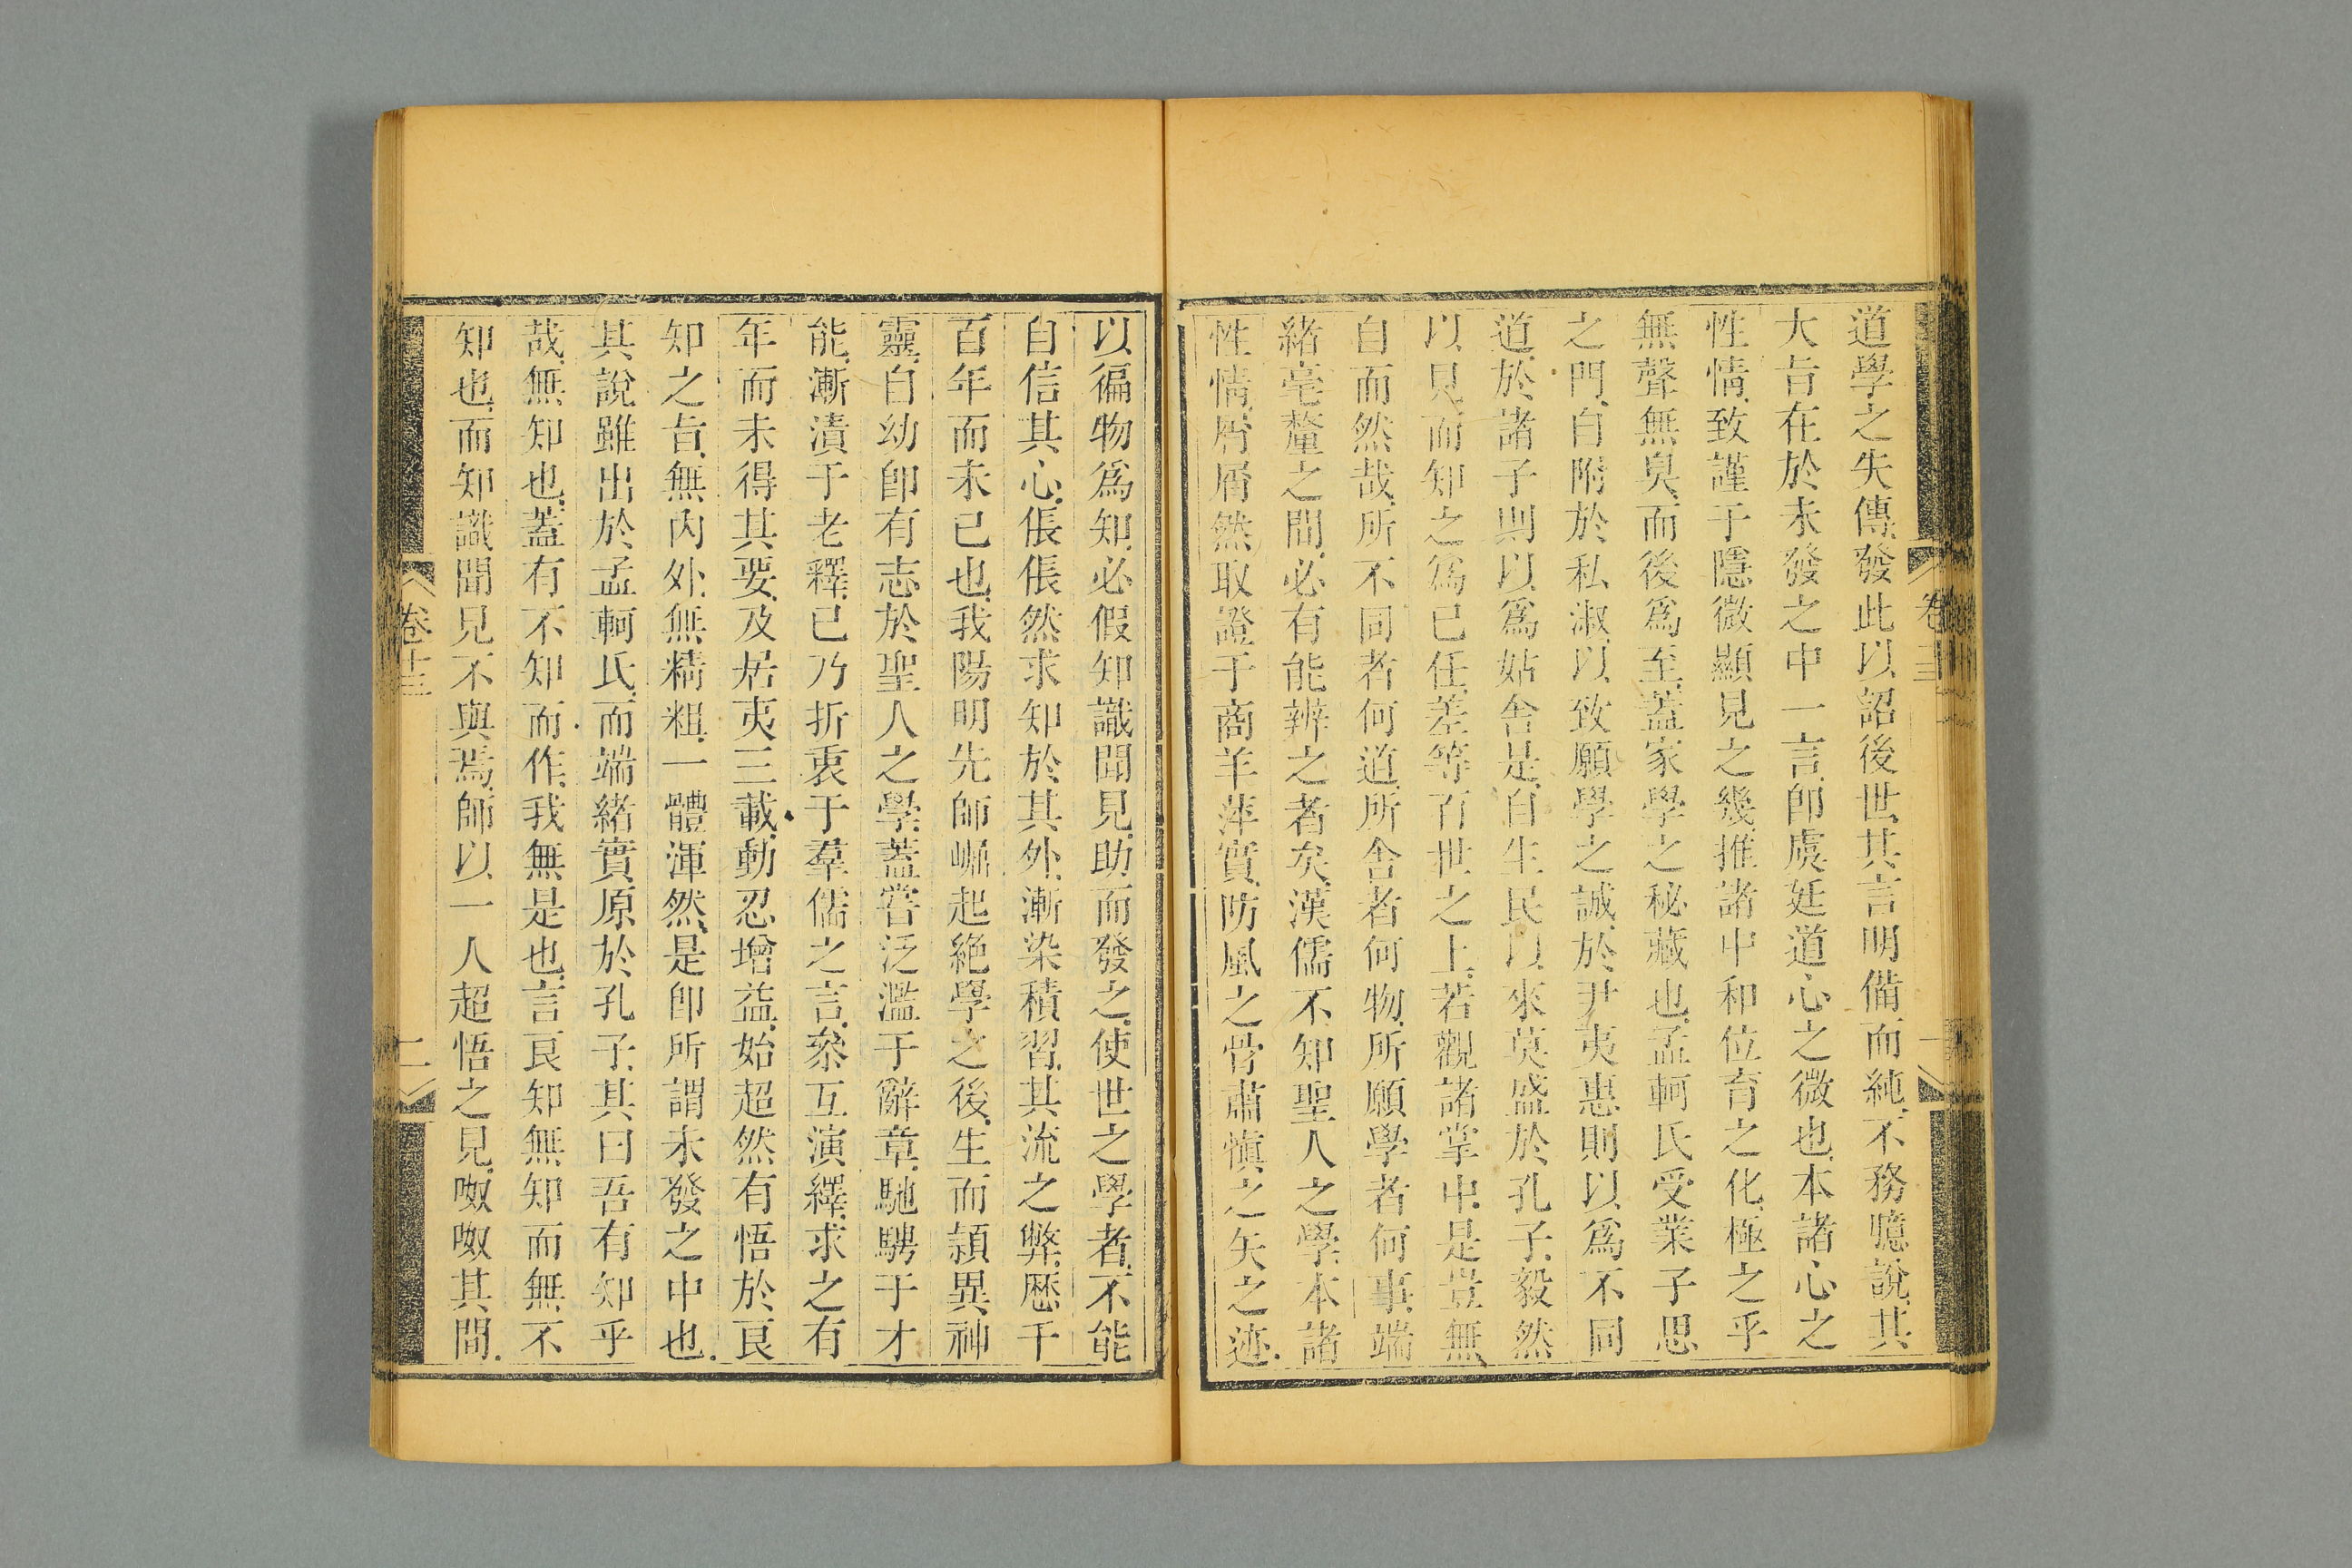 道學之失傳發此以詔後世其言明備而純不務臆說其
大旨在於未發之中一言卽虞廷道心之微也本諸心之
性情致謹于隱微顯見之幾推諸中和位育之化極之乎
無聲無臭而後爲至蓋家學之秘藏也孟軻氏受業子思
之門自附於私淑以致願學之誠於尹夷惠則以爲不同
道於諸子則以爲姑舍是自生民以來莫盛於孔子毅然
以見而知之爲已任差等百世之上若觀諸掌中是豈無
自而然哉所不同者何道所舍者何物所願學者何事端
緒毫釐之間必有能辨之者矣漢儒不知聖人之學本諸
性情屑屑然取證于商羊萍實防風之骨肅愼之矢之迹
以徧物爲知必假知識聞見助而發之使世之學者不能
自信其心倀倀然求知於其外漸染積習其流之弊歷千
百年而未已也我陽明先師崛起絕學之後生而頴異神
靈自幼卽有志於聖人之學蓋嘗泛濫于辭章馳騁于才
能漸漬于老釋已乃折衷于羣儒之言叅互演繹求之有
年而未得其要及居夷三載動忍增益始超然有悟於良
知之旨無內外無精粗一體渾然是卽所謂未發之中也
其說雖出於孟軻氏而端緒實原於孔子其曰吾有知乎
哉無知也蓋有不知而作我無是也言良知無知而無不
知也而知識聞見不與焉師以一人超悟之見呶呶其間
卷十三
二